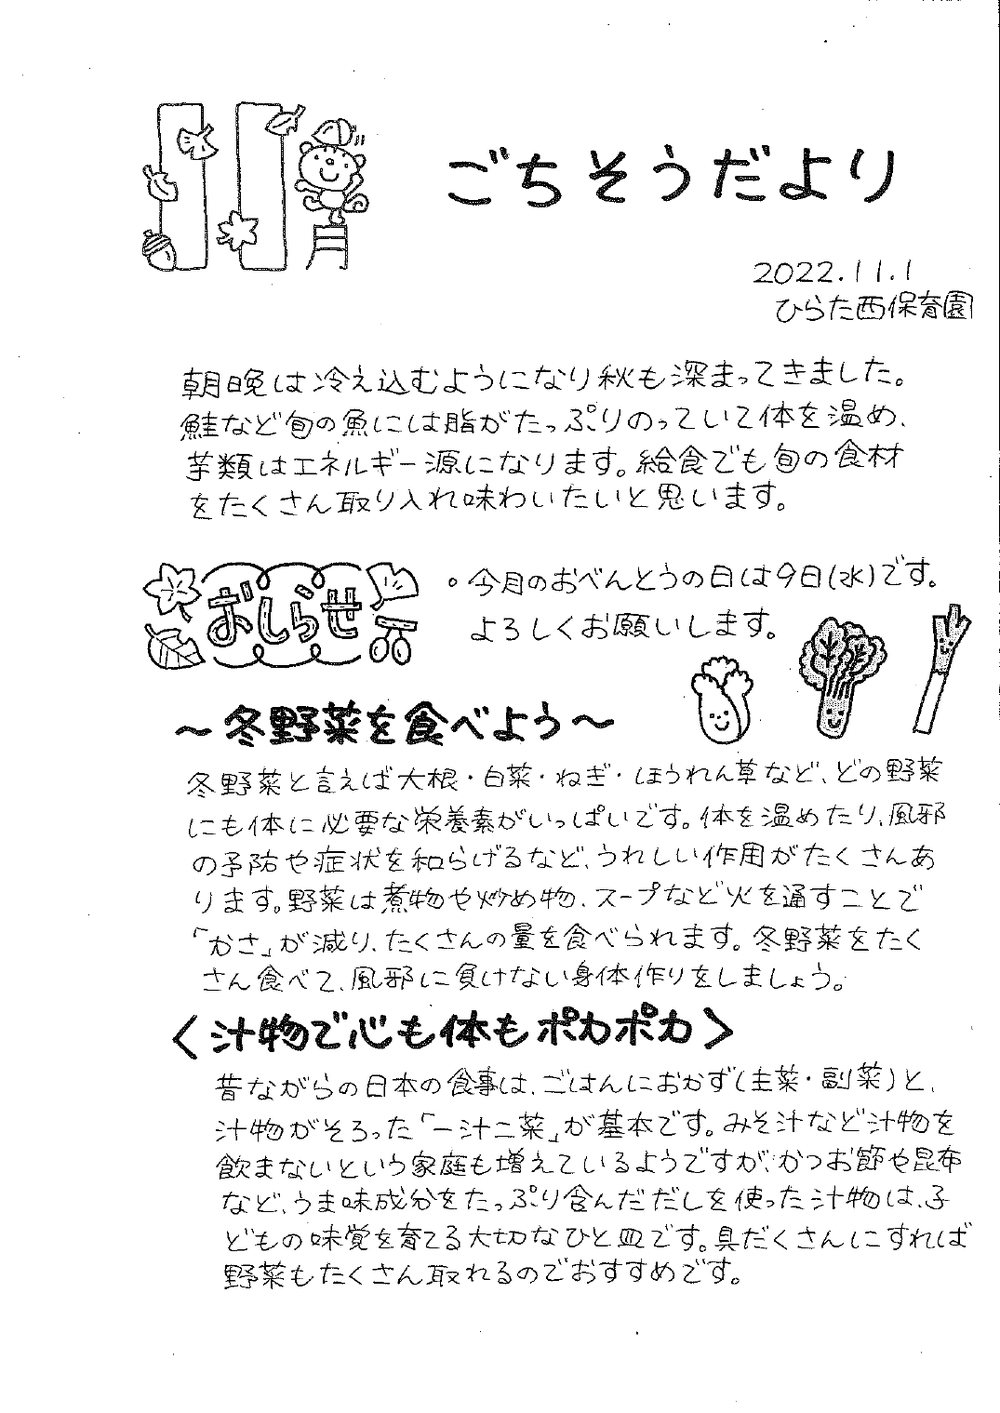 11月
ごちそうだより
2022.11.1
ひらた西保育園
朝晩は冷え込むようになり秋も深まってきました。
鮭など旬の魚には脂がたっぷりのっていて体を温め、
芋類はエネルギー源になります。給食でも旬の食材
をたくさん取り入れ味わいたいと思います。
おしらせ
。今月のおべんとうの日は9日(水)です。
よろしくお願いします。
～冬野菜を食べよう～
冬野菜と言えば大根・白菜・ねぎ・ほうれん草など、どの野菜
にも体に必要な栄養素がいっぱいです。体を温めたり、風邪
の予防や症状を和らげるなど、うれしい作用がたくさんあ
ります。野菜は煮物や炒め物、スープなど火を通すことで
「かさ」が減り、たくさんの量を食べられます。冬野菜をたく
さん食べて、風邪に負けない身体作りをしましょう。
〈汁物で心も体もポカポカ〉
昔ながらの日本の食事は、ごはんにおかず(主菜・副菜)と、
汁物がそろった「一汁二菜」が基本です。みそ汁など汁物を
飲まないという家庭も増えているようですが、かつお節や昆布
など、うま味成分をたっぷり含んだだしを使った汁物は、子
どもの味覚を育てる大切なひと皿です。具だくさんにすれば
野菜もたくさん取れるのでおすすめです。